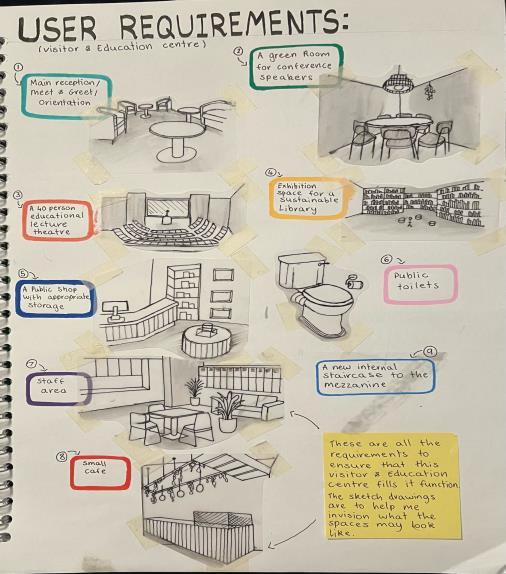 USER REQUIREMENTS:
(visitor & Education centre)
①
Main reception/
meet & Greet/
Orientation
②
A green Room
for conference
speakers
③
A 40 person
educational
lecture
theatre
④
Exhibition
space for a
Sustainable
Library
⑤
A Public Shop
with appropriate
storage
⑥
Public
toilets
⑦
Staff
area
⑨
A new internal
staircase to the
mezzanine
⑧
Small
cafe
These are all the
requirements to
ensure that this
visitor & Education
centre fills it function.
The sketch drawings
are to help me
invision what the
spaces may look
like.